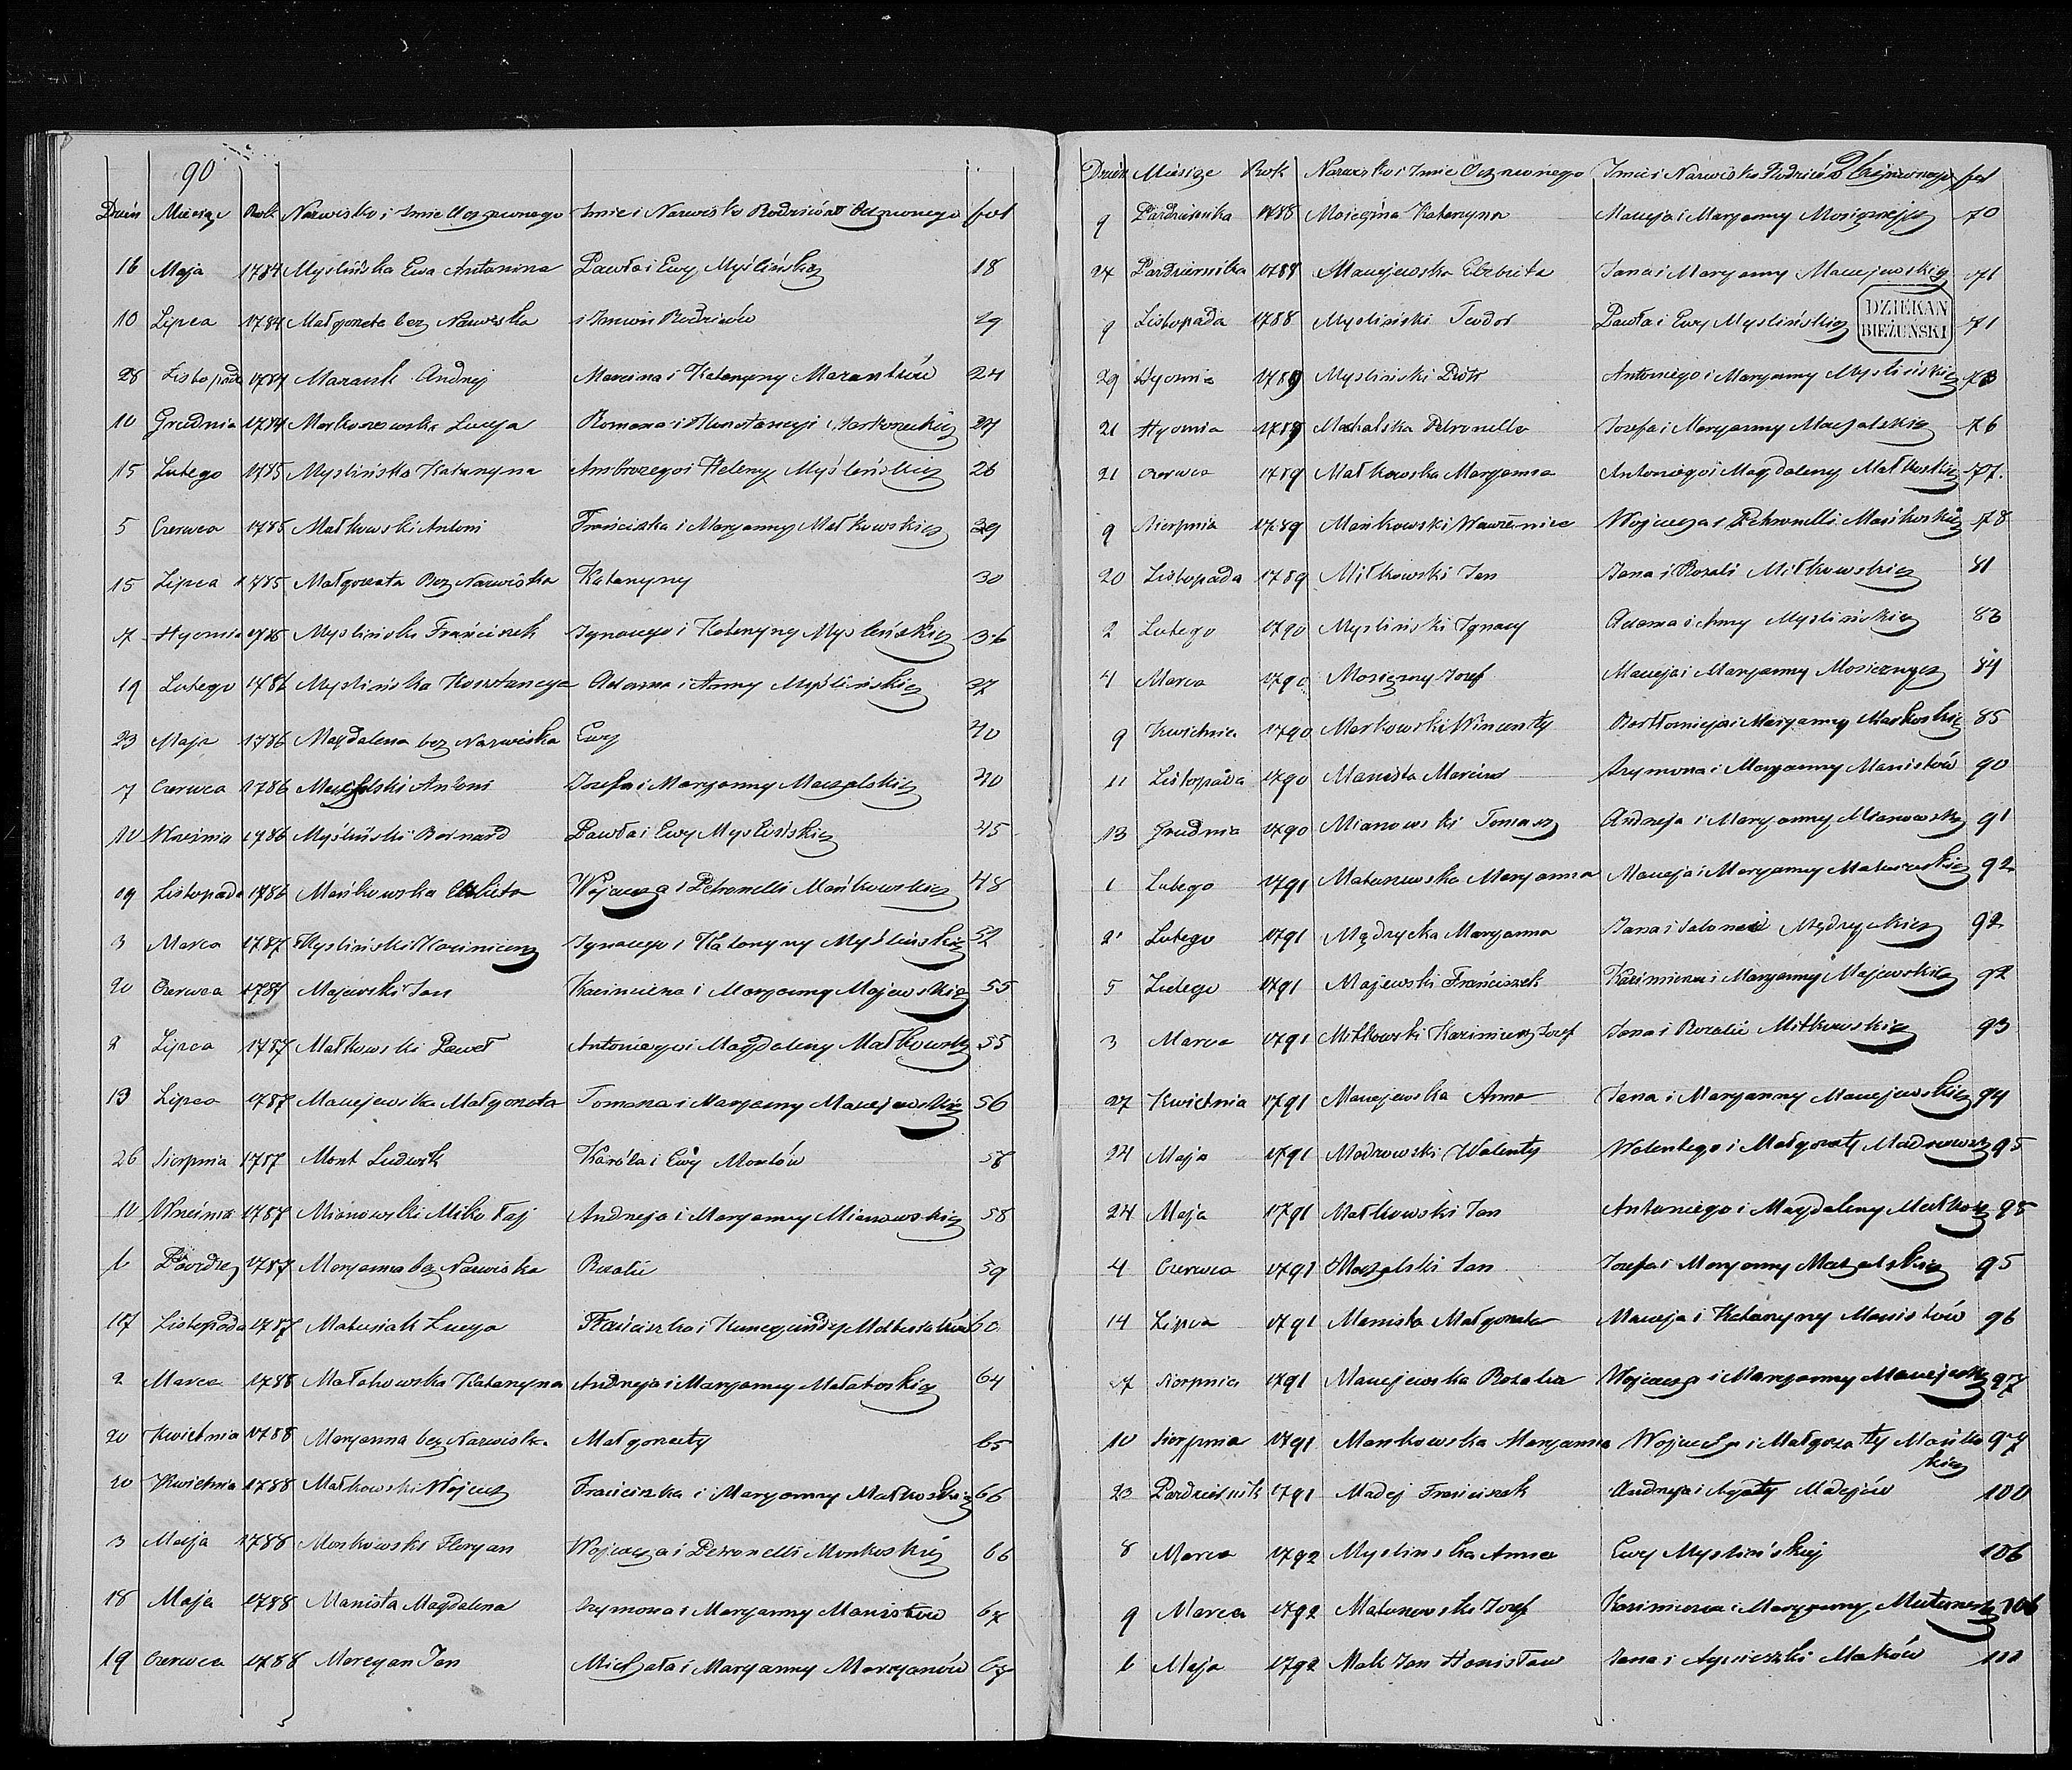 90
Dzień Miesiąc Rok Nazwisko i Imie Ochrzczonego Imie i Nazwisko Rodziców Ochrzczonego fol
16 Maja 1784 Myslińska Ewa Antonina Pawła i Ewy Myślińskich 18
10 Lipca 1784 Małgorzata bez Nazwiska i Imion Rodziców 29
28 Listopada 1784 Mazanek Andrzej Marcina i Katarzyny Mazanków 24
10 Grudnia 1784 Markoszewska Łucya Romana i Konstancyi 24
15 Lutego 1785 Myslińska Katarzyna Ambrożego i Heleny Myślińskich 26
5 Czerwca 1785 Małkowski Antoni Franciszka i Maryanny Małkowskich 29
15 Lipca 1785 Małgorzata Bez Nazwiska Katarzyny 30
7 Stycznia Mysliński Franciszek Ignacego i Katarzyny Myslińskich 36
19 Lutego 1786 Myslińska Konstancya Adama i Anny Myślińskich 37
23 Maja 1786 Magdalena bez Nazwiska Ewy 40
7 Czerwca 1786 Maszalski Antoni Jozefa i Maryanny Maszalskich 40
10 Września 1786 Myśliński Bernard Pawła i Ewy Myslińskich 45
19 Listopada 1786 Mańkowska Elżbieta Wojciecha i Petronelli Mańkowskich 48
3 Marca 1787 Mysliński Kazimierz Ignacego i Katarzyny Myślińskich 52
20 Czerwca 1787 Majewski Jan Kazimierza i Maryanny Majewskich 55
2 Lipca 1787 Małkowski Paweł Antoniego i Magdaleny Małkowskich 55
13 Lipca 1787 Maciejewska Małgorzata Tomasza i Maryanny Maciejewskich 56
26 Sierpnia 1787 Mont Ludwik Karola i Ewy Montów 58
10 Września 1787 Mianowski Mikołaj Andrzeja i Maryanny Mianowskich 58
6 1787 Maryanna bez Nazwiska Rozalii 59
17 Listopada 1787 Matusiak Łucya Franciszka i Kunegundy Matusiaków 60
2 Marca 1788 Małahowska Katarzyna Andrzeja i Maryanny Małahoskich 64
20 Kwietnia 1788 Maryanna bez Nazwiska Małgorzaty 65
20 Kwietnia 1788 Małkowski Wojciech Franciszka i Maryanny Małkoskich 66
3 Maja 1788 Monkowski Floryan Wojciecha i Petronelli Monkoskich 66
18 Maja 1788 Manista Magdalena Szymona i Maryanny Manistów 67
19 Czerwca 1788 Marcyan Jan Michała i Maryanny Marcyanów 67
Dzień Miesiąc Rok Nazwisko i Imie Ochrzczonego Imie i Nazwisko Rodziców Ochrzczonego fol
9 Października 1788 Mosiężna Katarzyna Macieja i Maryanny Mosiężnych 70
27 Października 1788 Maciejewska Elżbieta Jana i Maryanny Maciejewskich 71
9 Listopada 1788 Mysliński Teodor Pawła i Ewy Myslińskich 71
DZIEKAN
BIEŻUŃSKI
29 Stycznia 1789 Mysliński Piotr Antoniego i Maryanny Myslińskich 73
21 Stycznia 1789 Machalska Petronella Jozefa i Maryanny Maszalskich 76
21 Czerwca 1789 Małkowska Maryanna Antoniego i Magdaleny Małkoskich 77
9 Sierpnia 1789 Mańkowski Wawrzyniec Wojciecha i Petronelli Mańkoskich 78
20 Listopada 1789 Miłkowski Jan Jana i Rozalii Miłkowskich 81
2 Lutego 1790 Mysliński Ignacy Adama i Anny Myslińskich 83
4 Marca 1790 Mosiężny Jozef Macieja i Maryanny Mosiężnych 84
9 Kwietnia 1790 Markowski Wincenty Bartłomieja i Maryanny Markoskich 85
11 Listopada 1790 Manista Marcin Szymona i Maryanny Manistów 90
13 Grudnia 1790 Mianowski Tomasz Andrzeja i Maryanny Mianowskich 91
1 Lutego 1791 Matuszewska Maryanna Macieja i Maryanny Matuszeskich 92
2 Lutego 1791 Mądrzycka Maryanna Jana i Salomei Mądrzyckich 92
5 Lutego 1791 Majewski Franciszek Kazimierza i Maryanny Majewskich 92
3 Marca 1791 Miłkowski Kazimierz Jozef Jana i Rozalii Miłkowskich 93
27 Kwietnia 1791 Maciejewska Anna Jana i Maryanny Maciejewskich 94
24 Maja 1791 Madrowski Walenty Walentego i Małgorzaty Madrowskich 95
24 Maja 1791 Małkowski Jan Antoniego i Magdaleny 95
4 Czerwca 1791 Maszalski Jan Jozefa i Maryanny Maszalskich 95
14 Lipca 1791 Manista Małgorzata Macieja i Katarzyny Manistów 96
27 Sierpnia 1791 Maciejewska Rozalia Wojciecha i Maryanny Maciejewskich 97
10 Sierpnia 1791 Mankowska Maryanna Wojciecha i Małgorzaty Mańko 97
skich
23 Październik 1791 Madej Franciszek Andrzeja i Agaty Madejów 100
8 Marca 1792 Myslinska Anna Ewy Myslińskiej 106
9 Marca 1792 Matuszewski Jozef Kazimierza i Maryanny 106
6 Maja 1792 Mak Jan Stanisław Jana i Agnieszki Maków 111